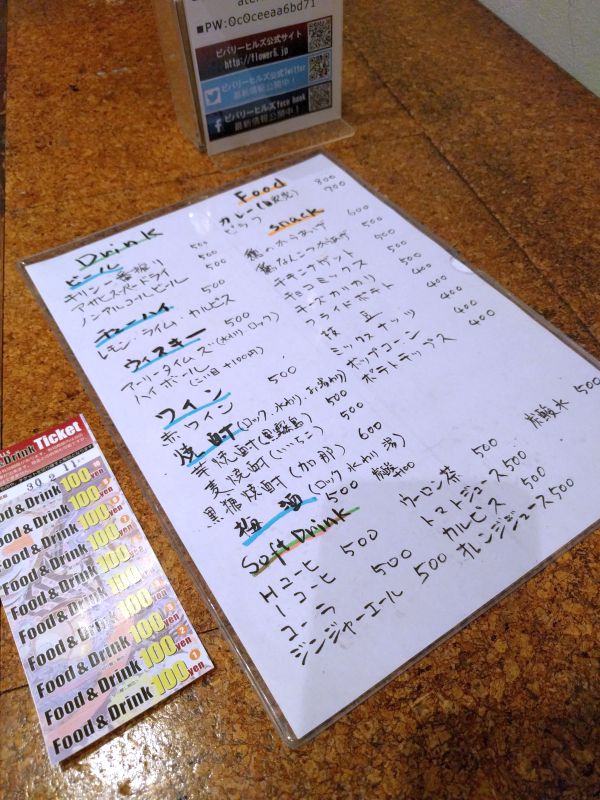 ■PW:0c0ceeaa6bd71
ビバリーヒルズ公式サイト
http://flower8.jp
ビバリーヒルズ公式Twitter
最新情報公開中!
ビバリーヒルズface book
最新情報公開中!
Drink
ビール
キリン一番搾り 500
アサヒスーパードライ 500
ノンアルコールビール 500
チューハイ
レモン・ライム・カルピス 500
ウィスキー
アーリータイムズ(水わり ロック) 500
ハイボール(二杯目+100円)
ワイン
赤ワイン 500
焼酎(ロック、水わり、お湯わり)
芋焼酎(黒霧島) 500
麦焼酎(いいちこ) 500
黒糖焼酎(加那) 600
梅酒(ロック 水わり 湯) 500
Soft Drink
Hコーヒ 500
Iコーヒ 500
コーラ 500
ジンジャーエール 500
ウーロン茶 500
トマトジュース 500
カルピス 500
オレンジジュース 500
炭酸水 500
Food
カレー 800
ピラフ 700
snack
鶏のからあげ 600
鶏なんこつからあげ 500
チキンナゲット 500
チョコミックス 500
チーズカリカリ 500
フライドポテト 400
枝豆 400
ミックスナッツ 400
ポップコーン 400
ポテトチップス 400
& Drink Ticket
30.2.11
Food & Drink 100 yen
Food & Drink 100 yen
Food & Drink 100 yen
Food & Drink 100 yen
Food & Drink 100 yen
Food & Drink 100 yen
Food & Drink 100 yen
Food & Drink 100 yen
Food & Drink 100 yen